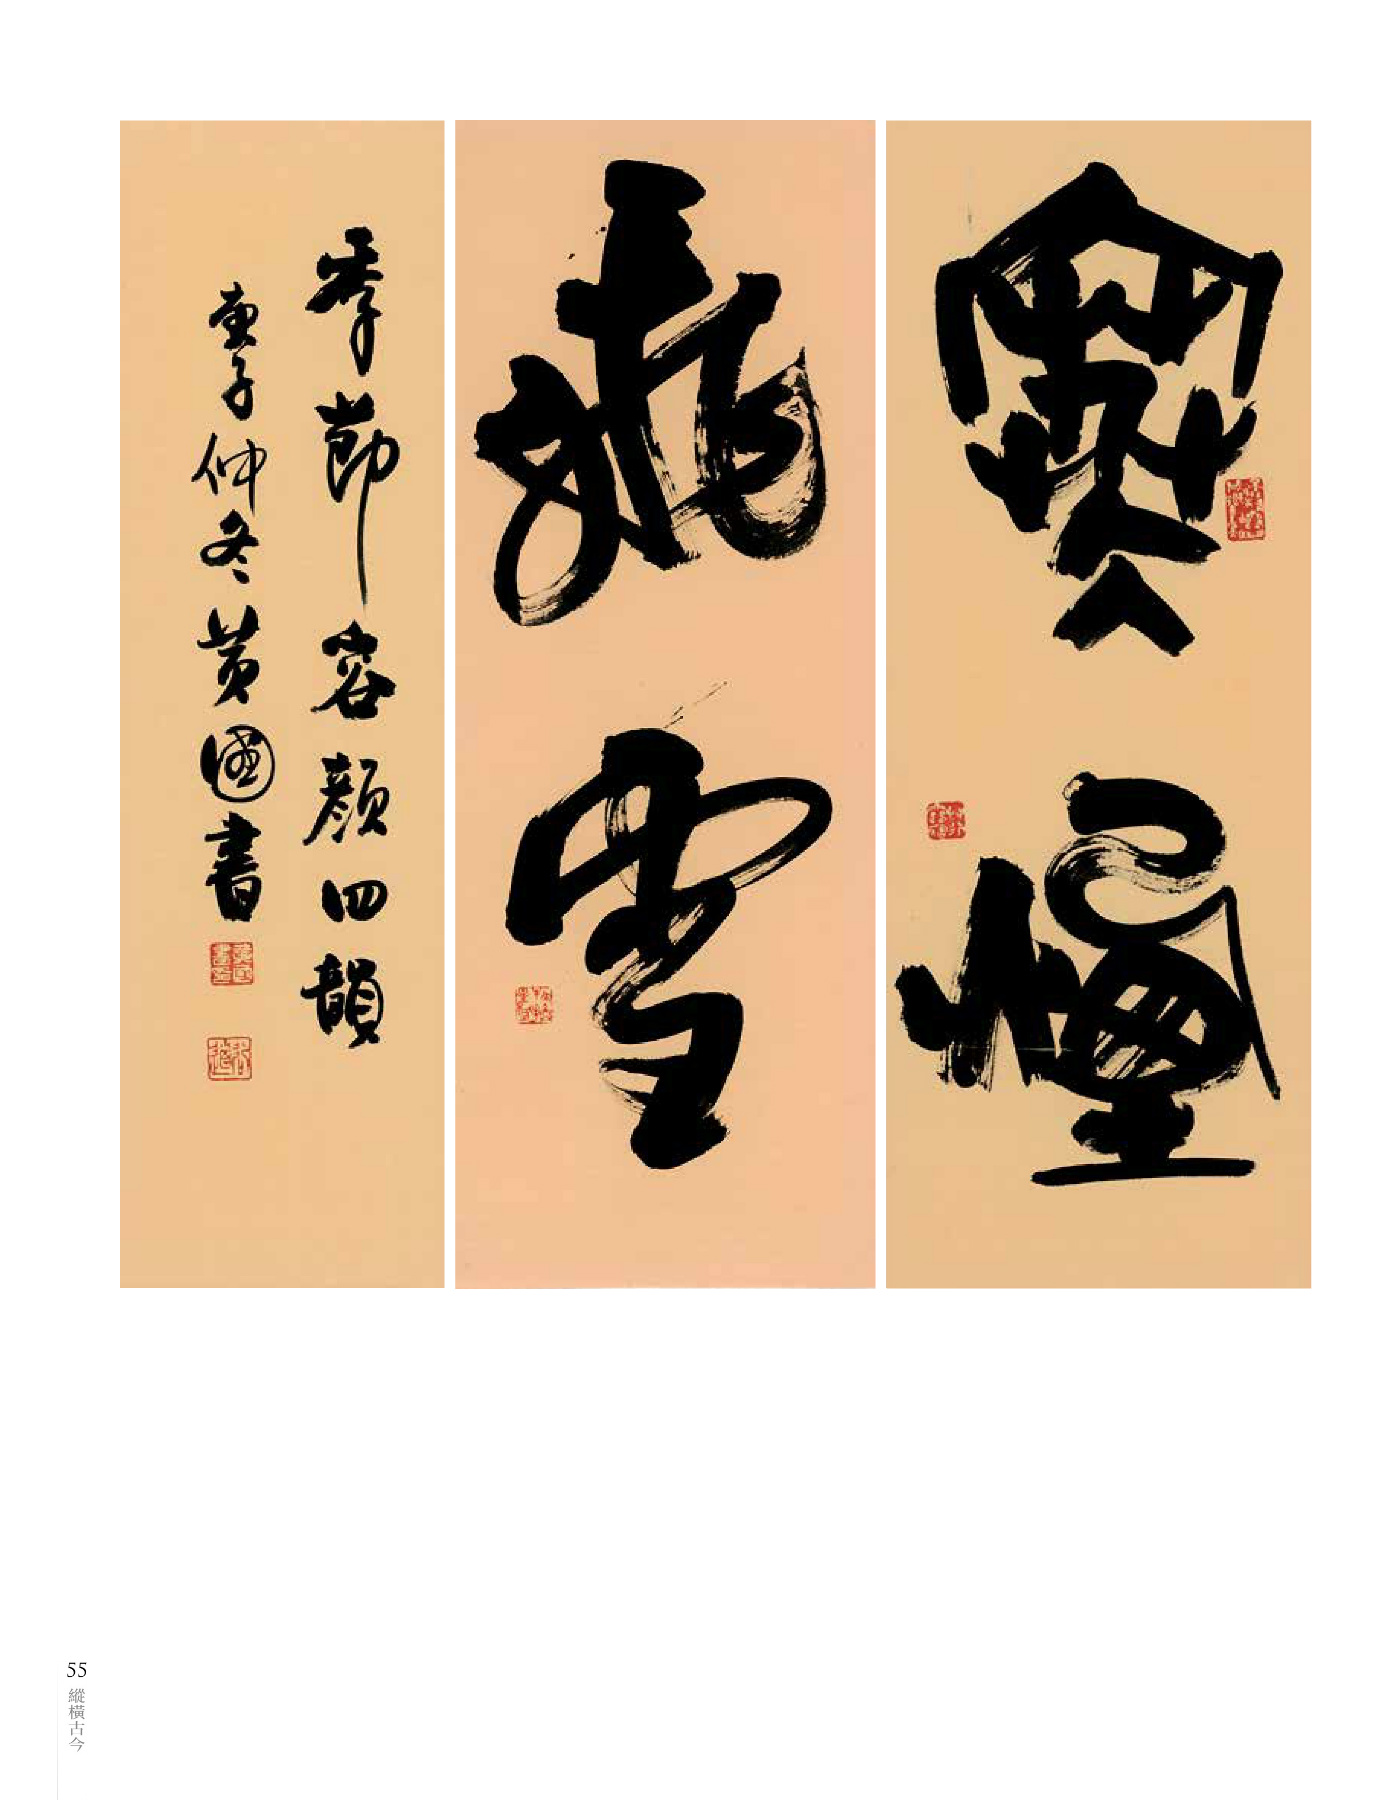 寒煙
飛雪
季節容顏四韻
庚子仲冬黃國書
55
縱橫古今